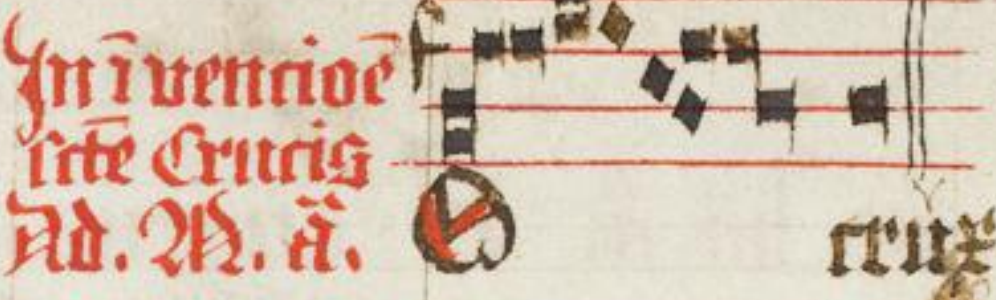 In īvencioē
scte Crucis
Ad. M. ā.
O crux